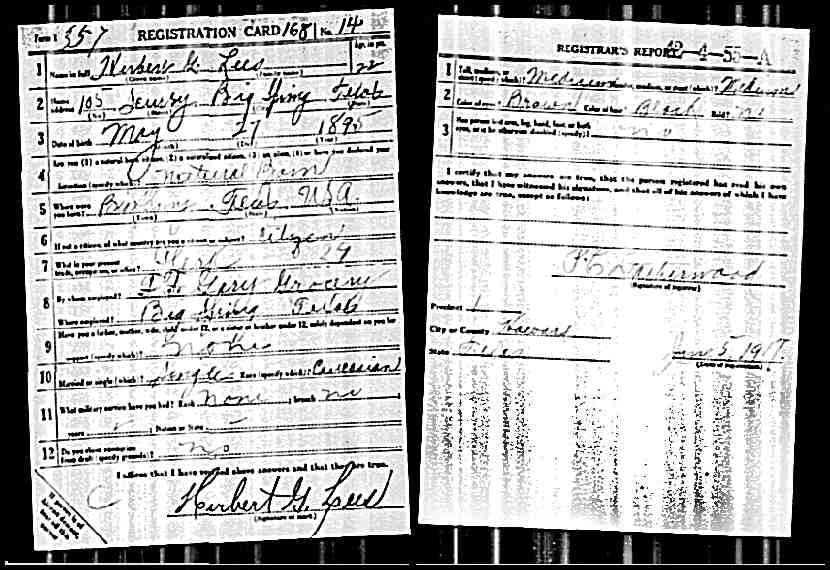 Form 1 557 REGISTRATION CARD 168 No. 14
1 Name in full Herbert G. Lees Age, in yrs. 22
(Given name) (Family name)
2 Home address 105 Big Texas
(No.)
3 Date of birth May 27 1895
(Year)
4 Are you (1) a natural born citizen, (2) a naturalized citizen, (3) an alien, (4) or have you declared your
intention (specify which)? Natural Born
5 Where were you born? Texas U.S.A.
(Town) (State) (Nation)
6 If not a citizen, of what country are you a citizen or subject? Citizen
7 What is your present trade, occupation, or office? Clerk 24
8 By whom employed? Gary Grocery
Where employed? Big Texas
9 Have you a father, mother, wife, child under 12, or a sister or brother under 12, solely dependent on you for
support (specify which)?
10 Married or single (which)? Single Race (specify which)? Caucasian
11 What military service have you had? Rank None branch no
years Nation or State
12 Do you claim exemption from draft (specify grounds)? No
I affirm that I have verified above answers and that they are true.
Herbert G. Lees
(Signature or mark)
REGISTRAR'S REPORT 42-4-55-A
1 Tall, medium, or short (specify which)? Medium Slender, medium, or stout (which)? Medium
2 Color of eyes Brown Color of hair Black Bald? No
3 Has person lost arm, leg, hand, foot, or both eyes, or is he otherwise disabled (specify)? No
I certify that my answers are true, that the person registered has read his own
answers, that I have witnessed his signature, and that all of his answers of which I have
knowledge are true, except as follows:
(Signature of registrar)
Precinct 1
City or County Howard
State Texas June 5 1917
(Date of registration)